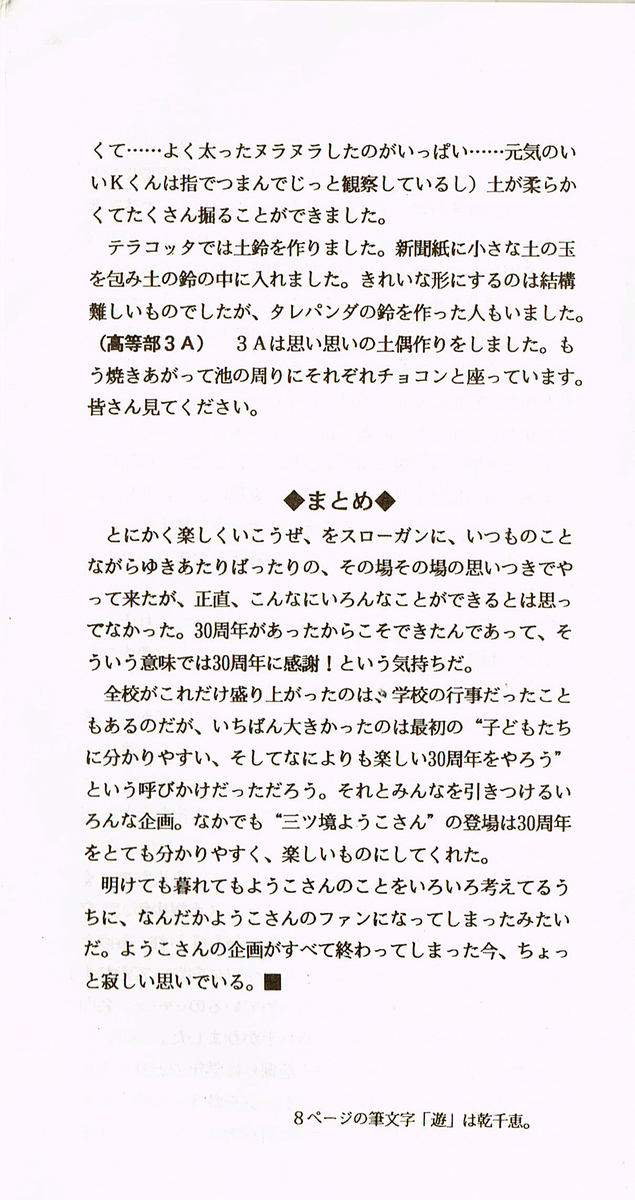 くて……よく太ったヌラヌラしたのがいっぱい……元気のい
いＫくんは指でつまんでじっと観察しているし）土が柔らか
くてたくさん掘ることができました。
テラコッタでは土鈴を作りました。新聞紙に小さな土の玉
を包み土の鈴の中に入れました。きれいな形にするのは結構
難しいものでしたが、タレパンダの鈴を作った人もいました。
（高等部３Ａ）　３Ａは思い思いの土偶作りをしました。も
う焼きあがって池の周りにそれぞれチョコンと座っています。
皆さん見てください。
◆まとめ◆
とにかく楽しくいこうぜ、をスローガンに、いつものこと
ながらゆきあたりばったりの、その場その場の思いつきでや
って来たが、正直、こんなにいろんなことができるとは思っ
てなかった。30周年があったからこそできたんであって、そ
ういう意味では30周年に感謝！という気持ちだ。
全校がこれだけ盛り上がったのは、学校の行事だったこと
もあるのだが、いちばん大きかったのは最初の“子どもたち
に分かりやすい、そしてなによりも楽しい30周年をやろう”
という呼びかけだっただろう。それとみんなを引きつけるい
ろんな企画。なかでも“三ツ境ようこさん”の登場は30周年
をとても分かりやすく、楽しいものにしてくれた。
明けても暮れてもようこさんのことをいろいろ考えてるう
ちに、なんだかようこさんのファンになってしまったみたい
だ。ようこさんの企画がすべて終わってしまった今、ちょっ
と寂しい思いでいる。■
８ページの筆文字「遊」は乾千恵。